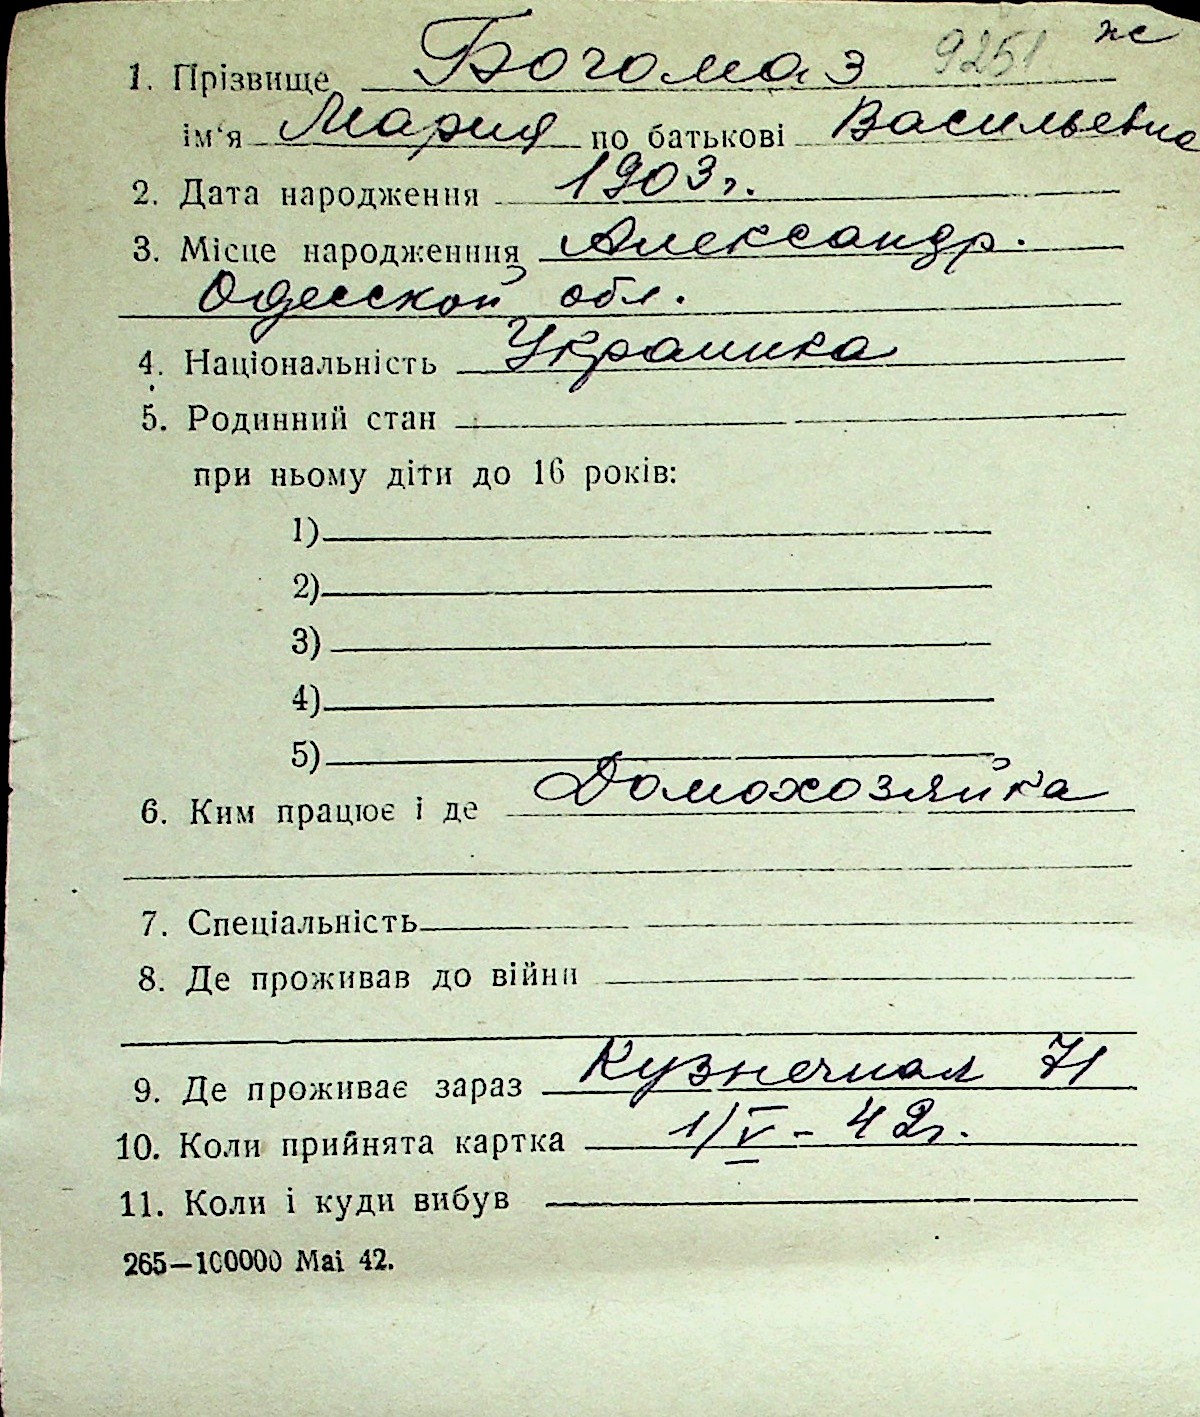 жс
1. Прізвище Богомаз 9251
ім‘я Мария по батькові Васильевна
2. Дата народження 1903 г.
3. Місце народженння Александр.
Одесской обл.
4. Національність Украинка
5. Родинний стан
при ньому діти до 16 років:
1)
2)
3)
4)
5)
6. Ким працює і де Домохозяйка
7. Спеціальність
8. Де проживав до війни
9. Де проживає зараз Кузнечная 71
10. Коли прийнята картка 1/V - 42г.
11. Коли і куди вибув
265—100000 Mai 42.